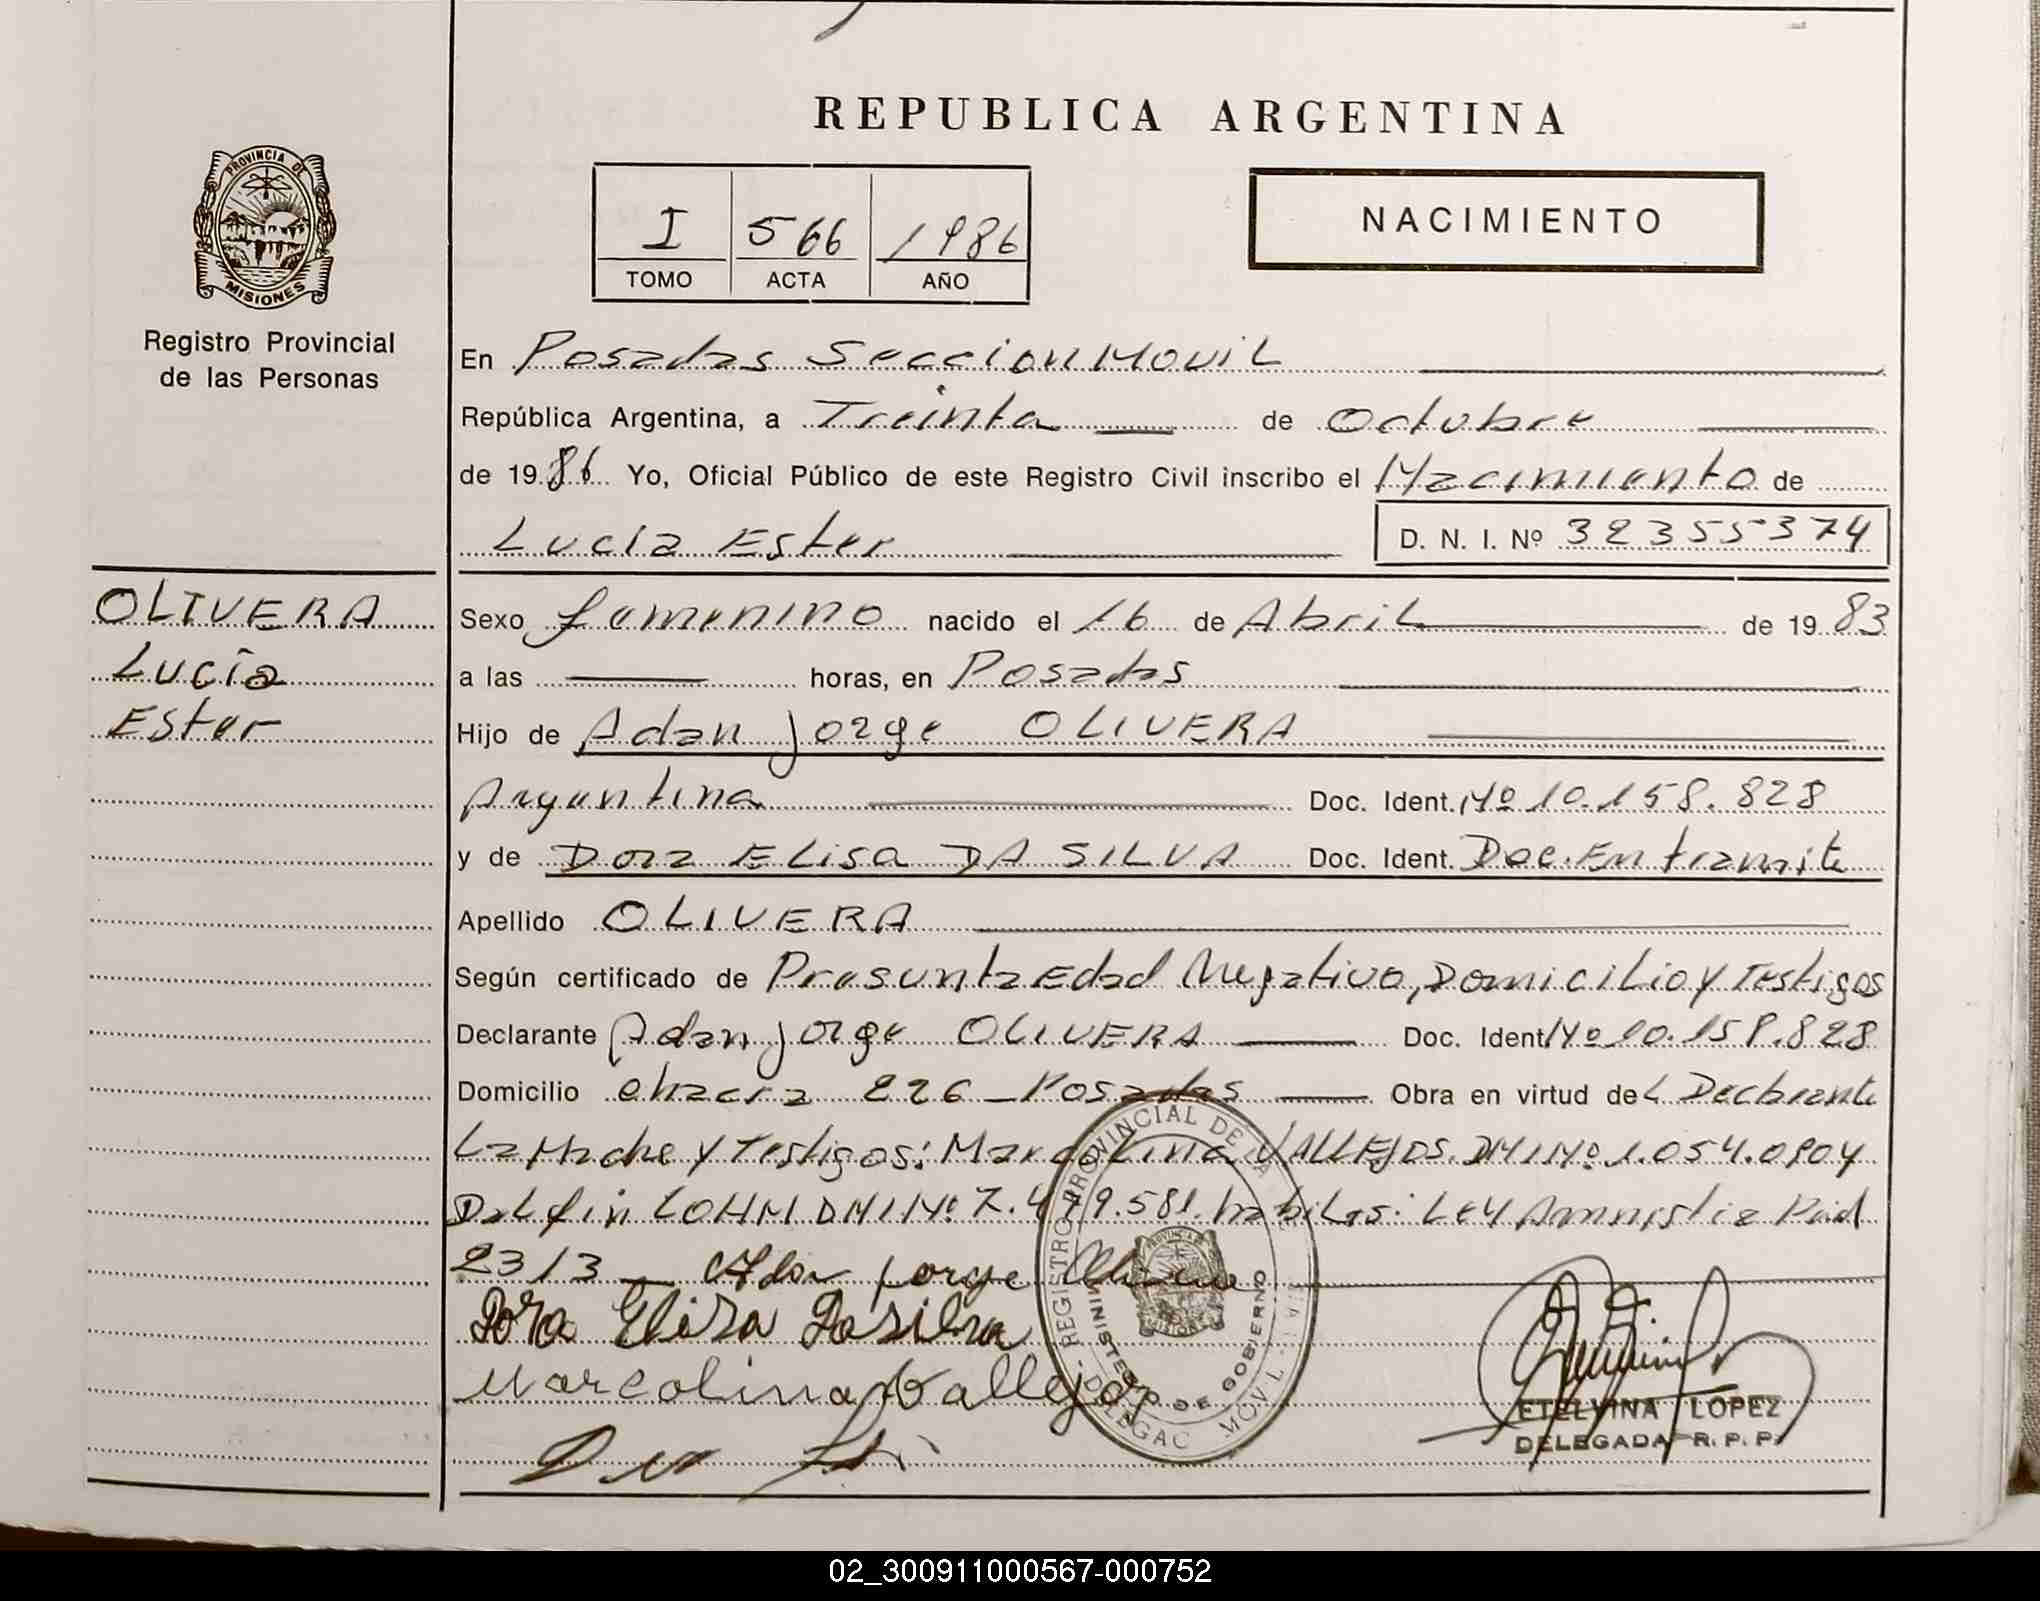 REPUBLICA ARGENTINA
PROVINCIA DE
MISIONES
Registro Provincial
de las Personas
I 566 1986
TOMO ACTA AÑO
NACIMIENTO
En Posadas Seccion Movil
República Argentina, a Treinta de Octubre
de 1986 Yo, Oficial Público de este Registro Civil inscribo el Nacimiento de
Lucia Ester D. N. I. Nº 32355374
OLIVERA
Lucía
Ester
Sexo femenino nacido el 16 de Abril de 1983
a las horas, en Posadas
Hijo de Adan Jorge OLIVERA
Argentina Doc. Ident. Nº 10.158.828
y de Dora ELisa DA SILVA Doc. Ident. Doc. En tramite
Apellido OLIVERA
Según certificado de Presunta Edad Negativo, Domicilio y Testigos
Declarante Adan Jorge OLIVERA Doc. Ident Nº 10.158.828
Domicilio chacra 226 - Posadas Obra en virtud del Declarante
La Madre y Testigos: Marcolina VALLEJOS. DNI Nº 1.054.0904
Delfin LOHM DNI Nº 7.479.581. habiles: Ley Amnistia
2313 - Adan jorge Olivera
Dora Elisa Dasilva
Marcolina Vallejos
REGISTRO PROVINCIAL DE LA
MINISTERIO DE GOBIERNO
MOVIL
ETELVINA LOPEZ
DELEGADA R. P. P.
02_300911000567-000752